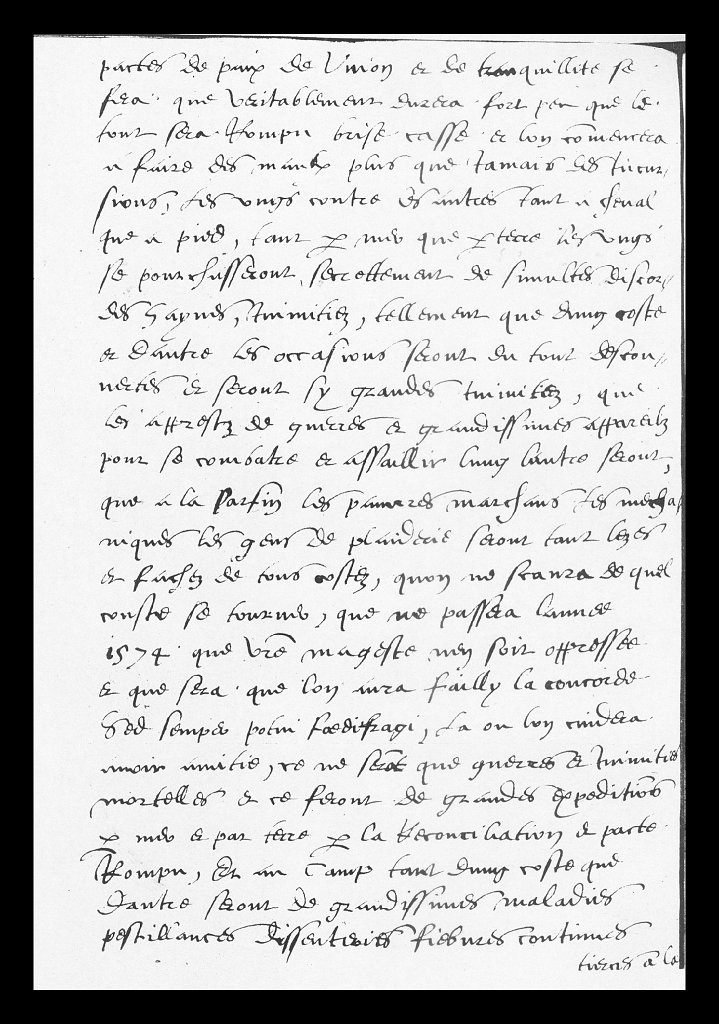 pactes de paix de Union et de tranquillite se
fera . que veritablement durera . fort peu que le .
tout sera . Rompu brise . casse . et lon comencera
a faire des maulx plus que Iamais les Incur-
sions, Les ungs contre les autres tant a cheval
que a pied, tant p mer que p terre les ungs
se pourchasseront secrettement de simultes discor-
des haynes, Inimitiez, tellement que dung coste
et dautre les occasions seront du tout descou-
vertes et seront sy grandes Inimitiez, que
les apprestz de guerres et grandissimes appareilz
pour se combatre et assaillir lung lautre seront,
que a la parfin les pauvres marchans les mecha-
niques les gens de plaiderie seront tant lezes
et fachez de tous costez, quon ne scaura de quel
couste se tourner, que ne passera lannee
1574 . que vre mageste nen soit oppressee
et que sera . que lon aura failly la concorde
Sed semper potui foedifragi, La ou lon cuidera
avoir amitie, ce ne serot que guerres et Inimities
mortelles et ce feront de grandes expeditios
p mer et par terre p la Reconciliation et pacte
Rompu, Et au Camp tant dung coste que
dautre seront de grandissimes maladies
pestillances dissenteries fiebvres continues
tierces a la